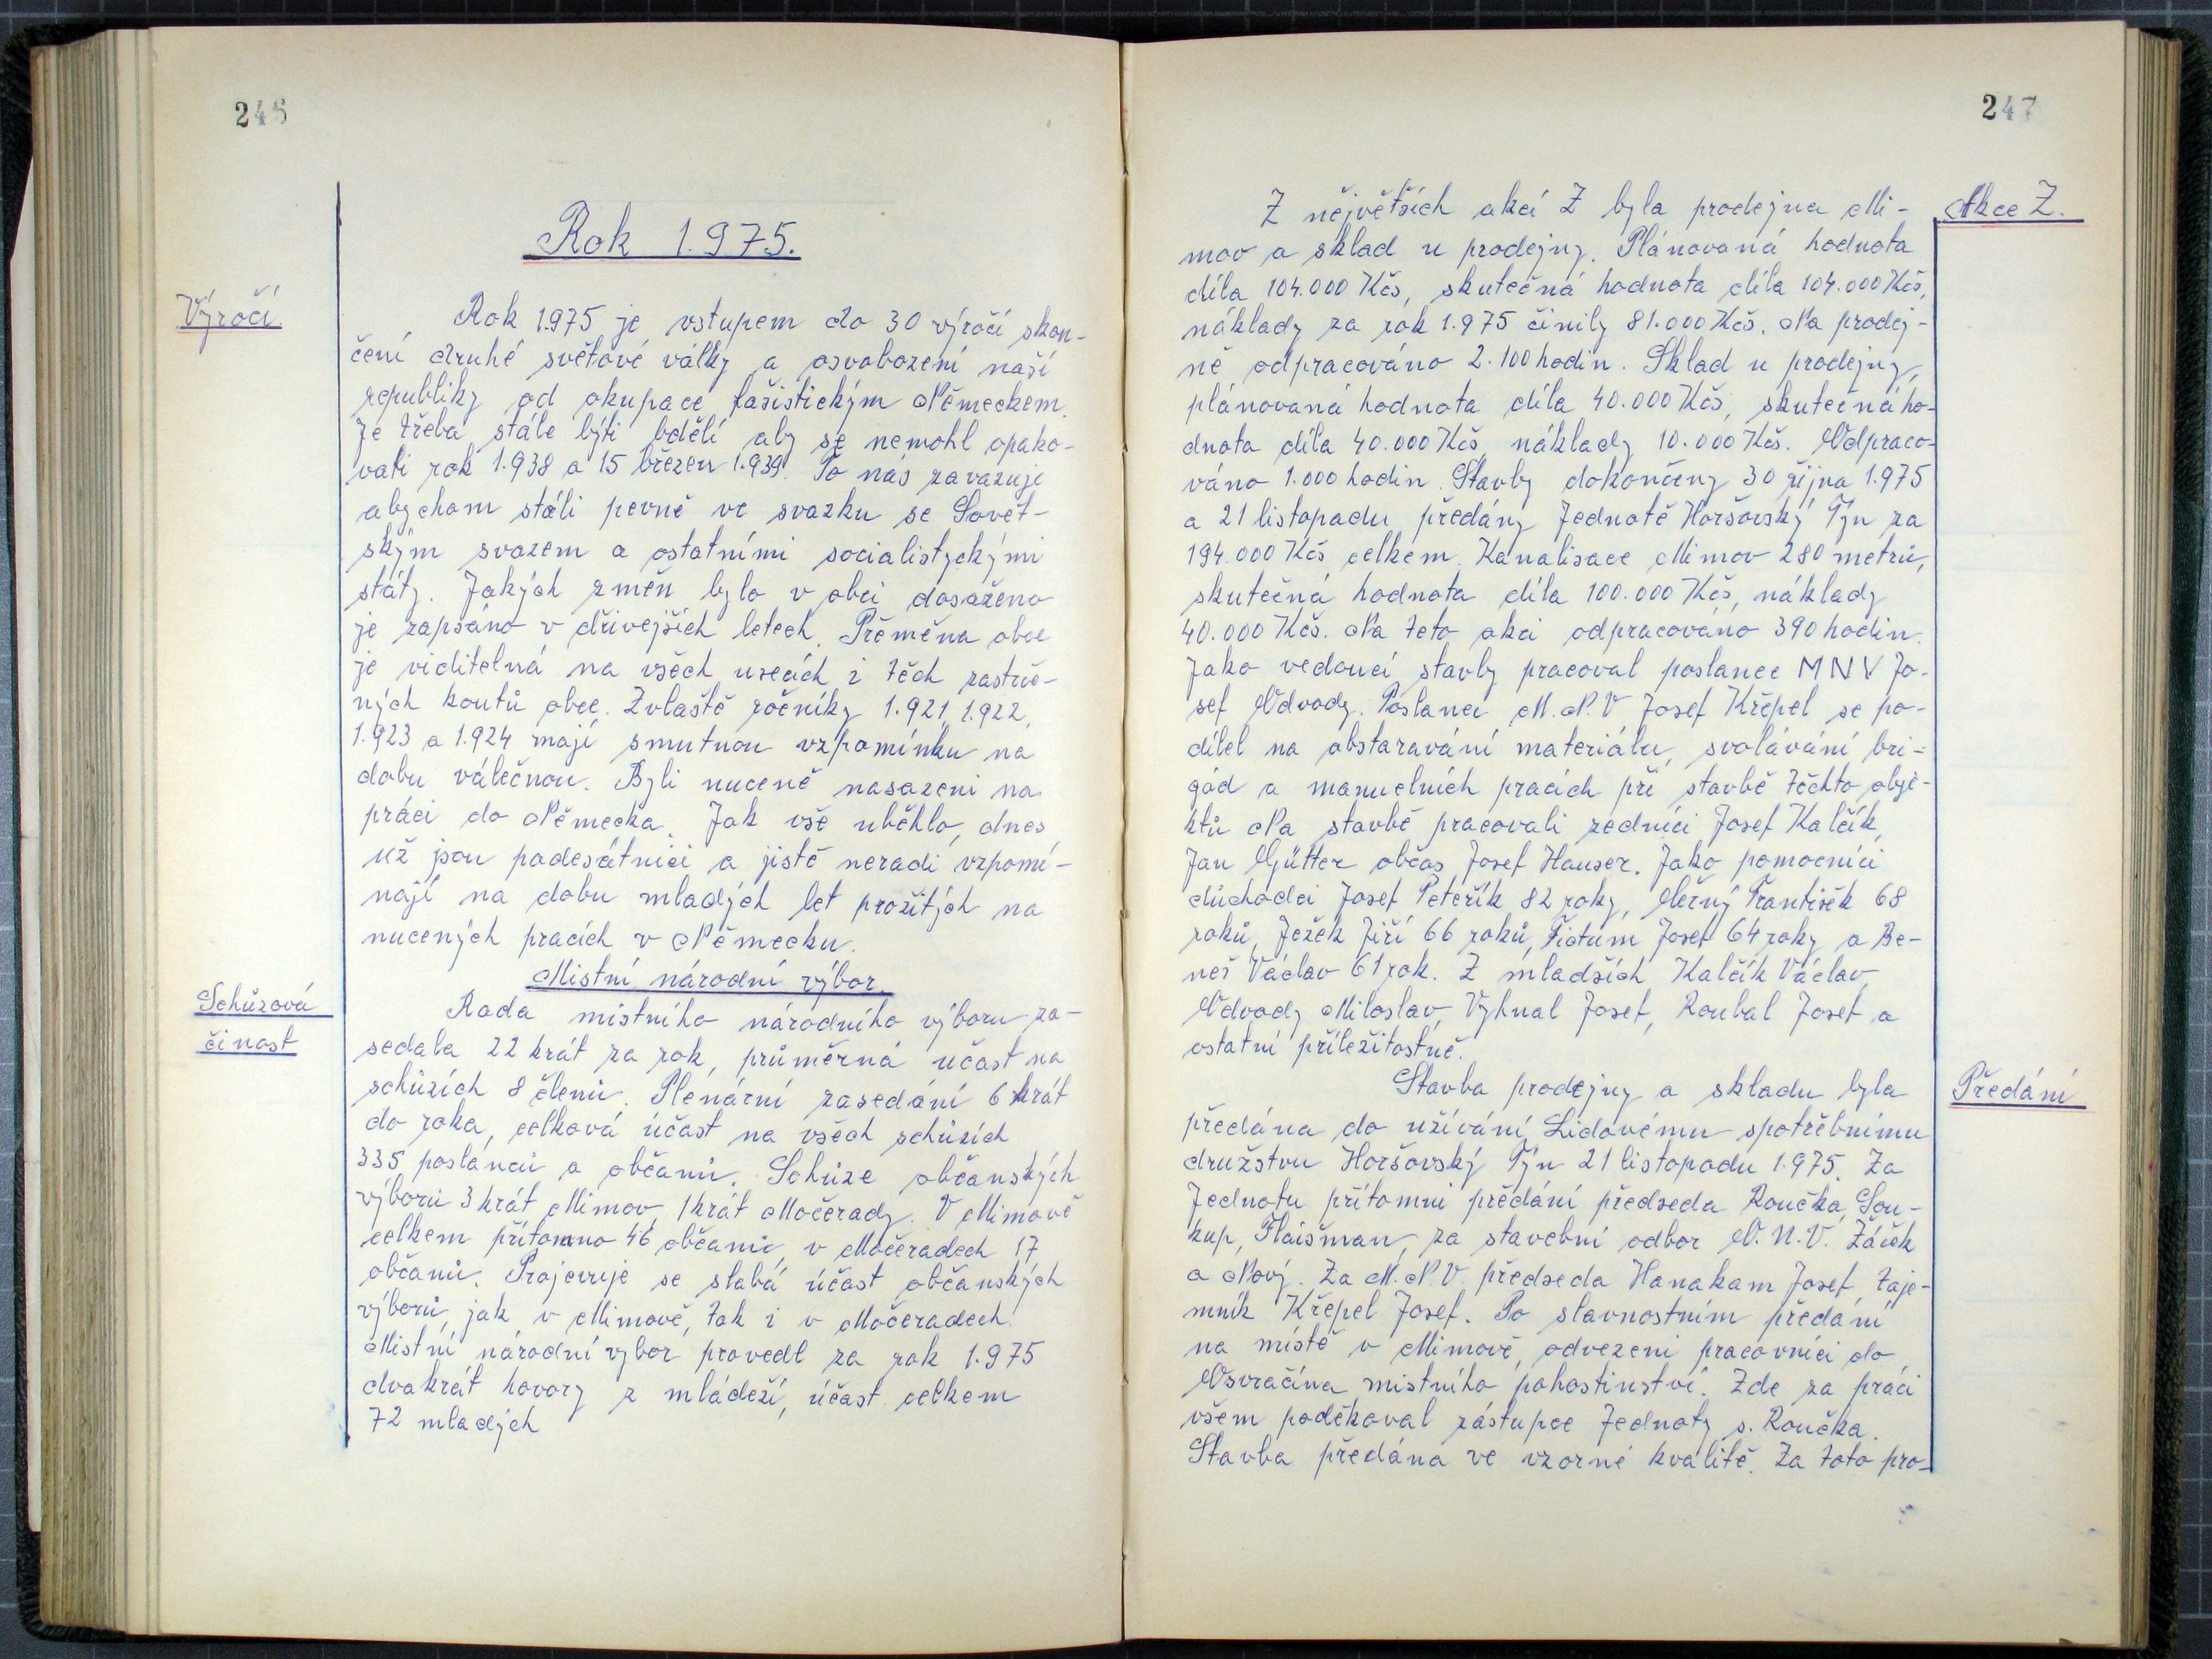 246
Rok 1.975.
Výročí
Rok 1.975 je vstupem do 30 výročí skon-
čení druhé světové války a osvobození naší
republiky od okupace fašistickým Německem.
Je třeba stále býti bdělí aby se nemohl opako-
vati rok 1.938 a 15 březen 1.939. To nás zavazuje
abychom stáli pevně ve svazku se Sovět-
ským svazem a ostatními socialistyckými
státy. Jakých změn bylo v obci dosaženo
je zapsáno v dřívejších letech. Přeměna obce
je viditelná na všech usecích i těch zastrče-
ných koutů obce. Zvlaště ročníky 1.921, 1.922,
1.923 a 1.924 mají smutnou vzpomínku na
dobu válečnou. Byli nuceně nasazeni na
práci do Německa. Jak vše uběhlo, dnes
už jsou padesátníci a jistě neradi vzpomí-
nají na dobu mladých let prožitých na
nucených pracích v Německu.
Místní národní výbor.
Schůzová
činost
Rada místního národního výboru za-
sedala 22 krát za rok, průměrná účast na
schůzích 8 členů. Plenární zasedání 6 krát
do roka, celková účast na všech schůzích
335 poslanců a občanů. Schůze občanských
výborů 3 krát Mimov, 1 krát Močerady. V Mimově
celkem přítomno 46 občanů, v Močeradech 17
občanů. Projevuje se slabá účast občanských
výborů, jak v Mimově, tak i v Močeradech.
Místní národní výbor provedl za rok 1.975
dvakrát hovory z mládeží, účast celkem
72 mladých
247
Akce Z.
Z největších akcí Z byla prodejna Mi-
mov a sklad u prodejny. Plánovaná hodnota
díla 104.000 Kčs, skutečná hodnota díla 104.000 Kčs,
náklady za rok 1.975 činily 81.000 Kčs. Na prodej-
ně odpracováno 2.100 hodin. Sklad u prodejny,
plánovaná hodnota díla 40.000 Kčs, skutečná ho-
dnota díla 40.000 Kčs, náklady 10.000 Kčs. Odpraco-
váno 1.000 hodin. Stavby dokončeny 30 října 1.975
a 21 listopadu předány Jednotě Horšovský Týn za
194.000 Kčs celkem. Kanalisace Mimov 280 metrů,
skutečná hodnota díla 100.000 Kčs, náklady
40.000 Kčs. Na teto akci odpracováno 390 hodin.
Jako vedoucí stavby pracoval poslanec MNV Jo-
sef Odvody. Poslanec M.N.V Josef Křepel se po-
dílel na obstaravání materiálu, svolávání bri-
gád a manuelních pracích při stavbě těchto obje-
ktů. Na stavbě pracovali zedníci Josef Kalčík,
Jan Gütter občas Josef Hauser. Jako pomocníci
důchodci Josef Peteřík 82 roky, Černý František 68
roků, Ježek Jiří 66 roků, Fiotum Josef 64 roky a Be-
neš Václav 61 rok. Z mladších Kalčík Václav,
Odvody Miloslav, Vyhnal Josef, Roubal Josef a
ostatní příležitostně.
Předání
Stavba prodejny a skladu byla
předána do užívání Lidovému spotřebnímu
družstvu Horšovský Týn 21 listopadu 1.975. Za
Jednotu přítomni předání předseda Roučka, Sou-
kup, Flaišman, za stavební odbor O.N.V. Žáček
a Nový. Za M.N.V. předseda Hanakam Josef, taje-
mník Křepel Josef. Po slavnostním předání
na místě v Mimově, odvezeni pracovníci do
Osvračína místního pohostinství. Zde za práci
všem poděkoval zástupce Jednoty s. Roučka.
Stavba předána ve vzorné kvalitě. Za toto pro-